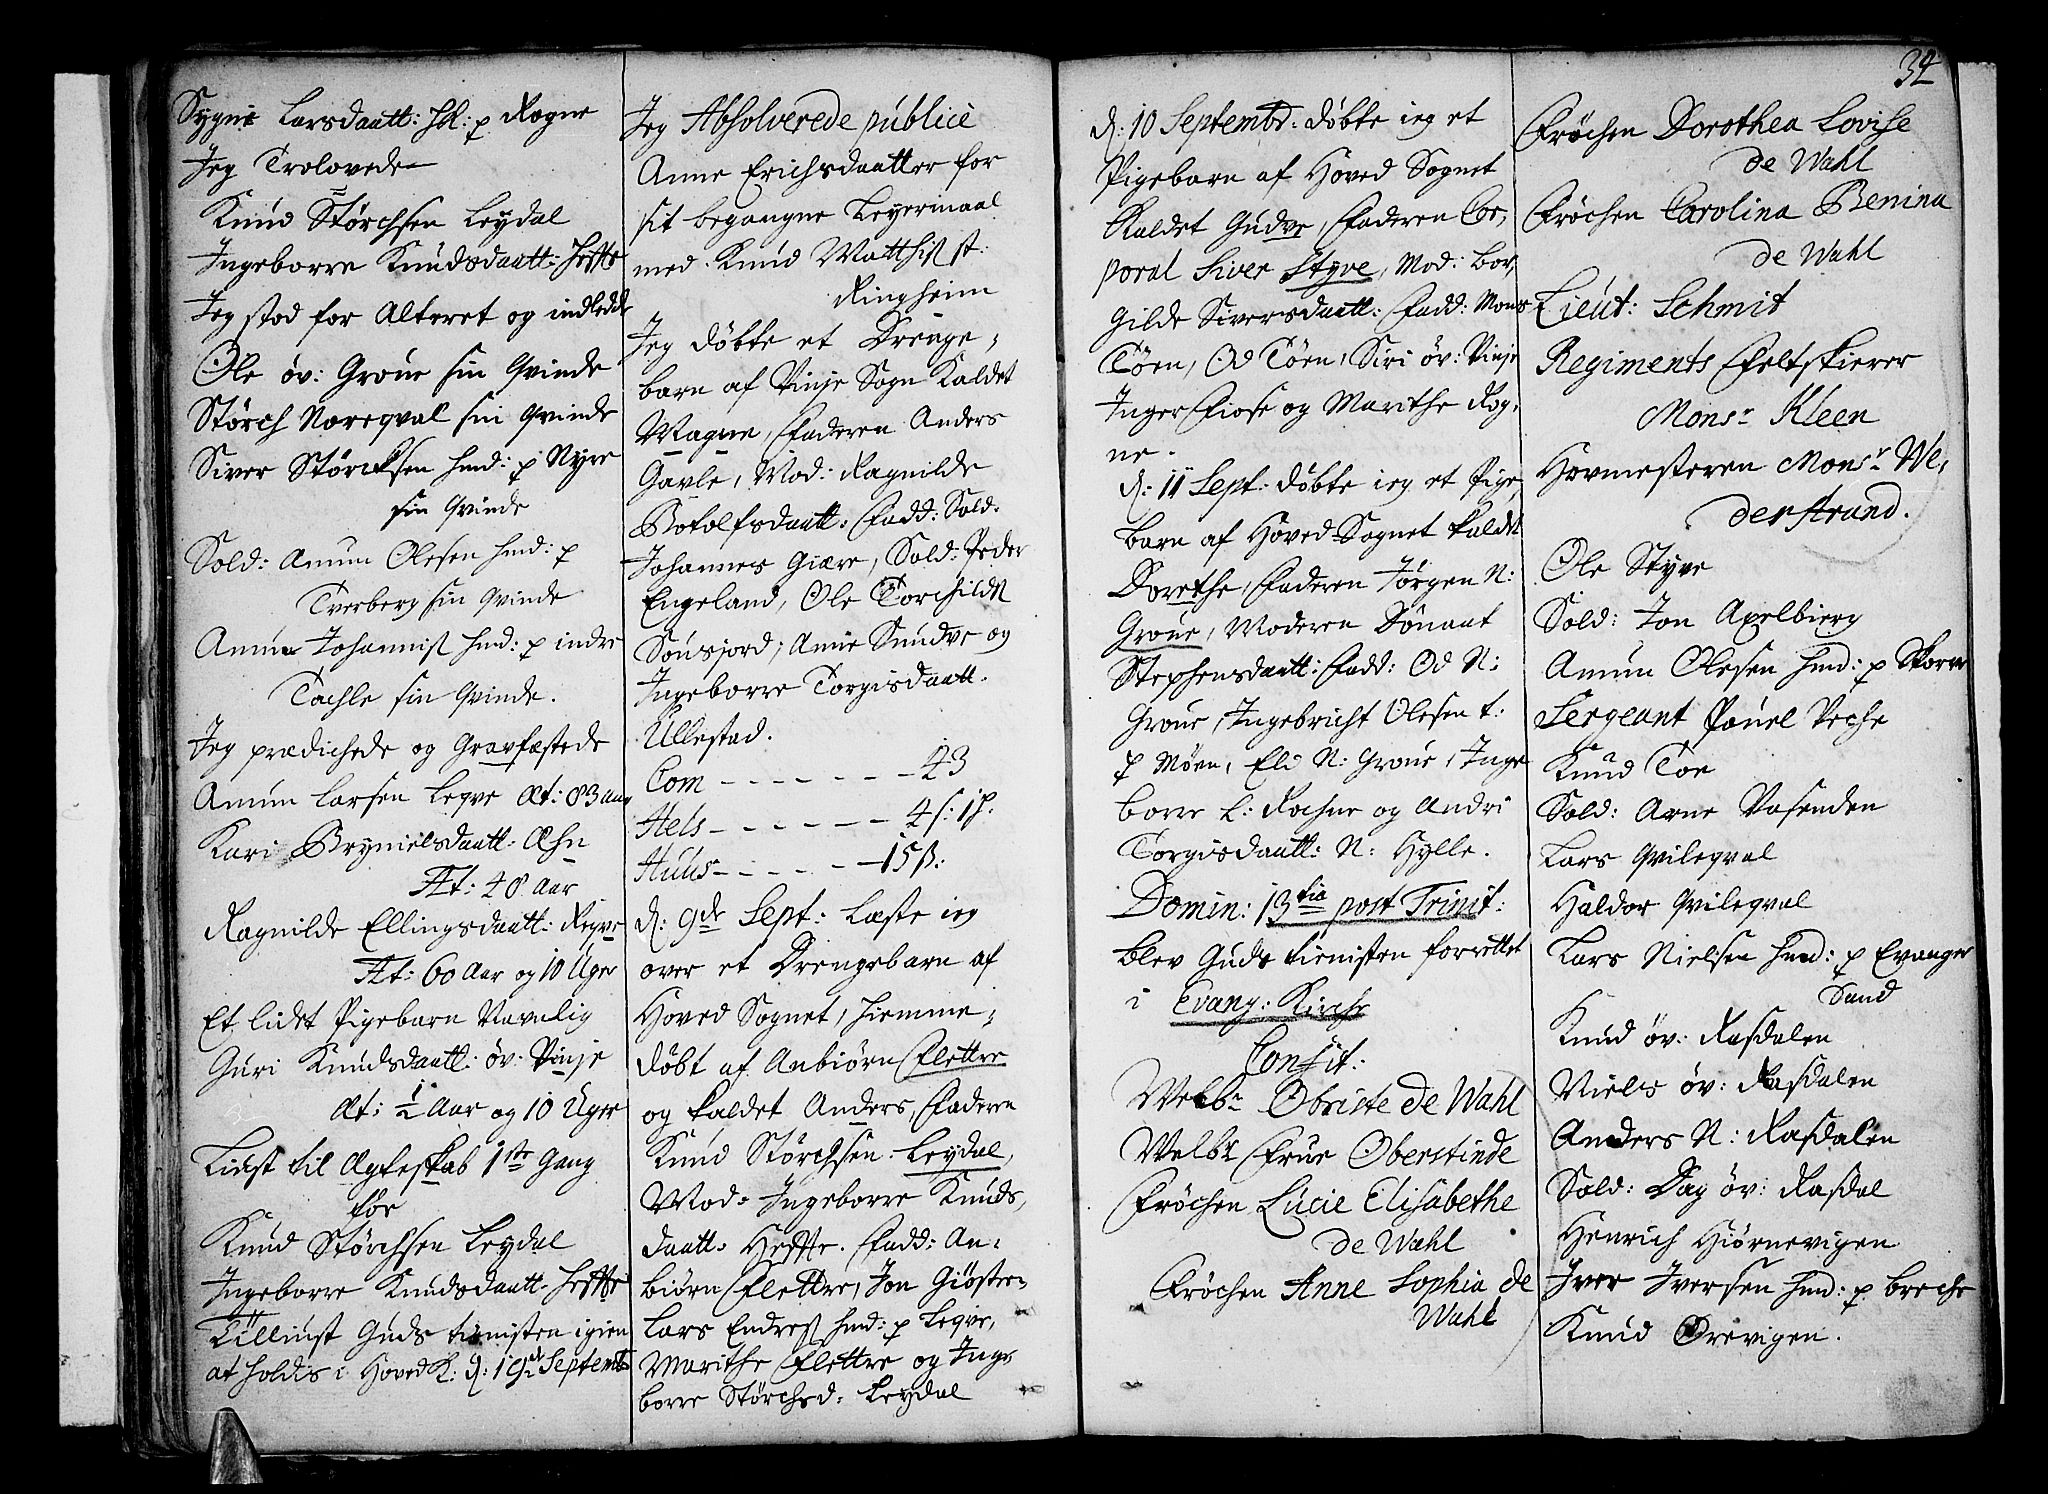 Sygni Larsdaatt: hl: p Rogne
Jeg Trolovede
Knud Störchsen Leydal
Ingeborre Knudsdaatt: Heffte
Jeg stod for Alteret og indledde
Ole öv: Groue sin Qvinde
Störch Noreqval sin Qvinde
Siver Störcksen hmd: p Nyre
sin Qvinde
Sold: Amun Olesen hmd: p
Tverberg sin Qvinde
Amun Johannis hmd: p indre
Tachle sin Qvinde.
Jeg prædichede og Gravfæstede
Amun Larsen Leqve Æt: 83 aar
Kari Brynielsdaatt: Æhn
Æt: 48 Aar
Ragnilde Ellingsdaatt: Reqve
Æt: 60 Aar og 10 Uger
Et lidet Pigebarn Navnlig
Guri Knudsdaatt: öv: Vinje
Æt: ½ Aar og 10 Uger
Liust til Ægteskab 1ste Gang
for
Knud Störchsen Leydal
Ingeborre Knudsdaatt: Heffte
Tilliust Guds tienisten igien
at holdes i Hoved K: d: 19de Septemb
Jeg Absolverede publice
Anne Erichsdaatter for
sit begangne Leyermaal
med Knud Matthis st:
Ringheim
Jeg döbte et Drenge,
barn af Vinje Sogn Kaldet
Magne, Faderen Anders
Gavle, Mod: Ragnilde
Botolfsdaatt: Fadd: Sold:
Johannes Giære, Sold: Peder
Engeland, Ole Torchilds
Sönsjord, Anne Sundve og
Ingeborre Torgisdaatt.
Ullestad.
Com - - - - - - - 43
Hels - - - - - - 4 s: 1 p:
Huus - - - - - - 15 ß:
d: 9de Sept: Læste ieg
over et Drengebarn af
Hoved Sognet, hiemme,
döbt af Anbiörn Flettre
og kaldet Anders, Faderen
Knud Störchsen Leydal,
Mod: Ingeborre Knuds,
daatt: Heffte. Fadd: An,
biörn Flettre, Jon Giöstre
Lars Endres hmd: p Leqve,
Marithe Flettre og Inge
borre Störchsd: Leydal
34
d: 10 Septembr: döbte ieg et
Pigebarn af Hoved Sognet
Kaldet Gudve, Faderen Cor,
poral Siver Styve, Mod: Bor,
gilde Siversdaatt: Fadd: Mons
Töen, Od Töen, Siri öv: Vinje
Inger Fiose og Marithe Rog,
ne.
d: 11 Sept: döbte ieg et Pige,
barn af Hoved Sognet kaldet
Dorethe, Faderen Jörgen N:
Groue, Moderen Dönant
Stephensdaatt: Fadd: Od N:
Groue, Ingebricht Olesen t:
p Möen, Eli N: Groue, Inge
borre L: Rachne og Andri
Torgisdaatt: N: Hylle.
Domin: 13tia post Trinit:
blev Guds tienisten forrettet
i Evang: Kirche
Confit:
Velb: Obriste de Wahl
Velbr Frue Oberstinde
Fröchen Lucie Elisabethe
de Wahl
Fröchen Anne Sophia de
Wahl
Fröchen Dorothea Lovise
de Wahl
Fröchen Carolina Benina
de Wahl
Lieut: Schmit
Regiments Feltskierer
Monsr Kleen
Hovmesteren Monsr We,
derstrand.
Ole Styve
Sold: Jon Axelbierg
Amun Olesen hmd: p Skorve
Sergeant Pouel Veche
Knud Töe
Sold: Arne Vasenden
Lars Qvileqval
Haldor Qvileqval
Lars Nielsen hmd: p Evanger
Sund
Knud öv: Rasdalen
Niels öv: Rasdalen
Anders N: Rasdalen
Sold: Dag öv: Rasdal
Henrich Hiörnevigen
Iver Iversen hmd: p breche
Knud Örevigen.